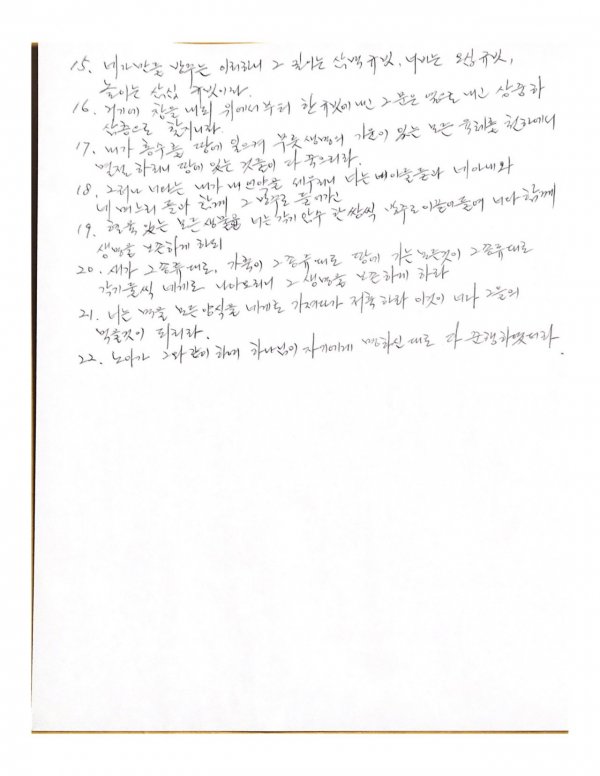 15. 네가 만들 방주는 이러하니 그 길이는 삼백 규빗, 너비는 오십 규빗,
높이는 삼십 규빗이라.
16. 거기에 창을 내되 위에서부터 한 규빗에 내고 그 문은 옆으로 내고 상중하
삼층으로 할지니라.
17. 내가 홍수를 땅에 일으켜 무릇 생명의 기운이 있는 모든 육체를 천하에서
멸절 하리니 땅에 있는 것들이 다 죽으리라.
18. 그러나 너와는 내가 내 언약을 세우리니 너는 네 아들들과 네 아내와
네 며느리 들과 함께 그 방주로 들어가고
19. 혈육 있는 모든 생물을 너는 각기 암수 한 쌍씩 방주로 이끌어들여 너와 함께
생명을 보존하게 하되
20. 새가 그 종류대로, 가축이 그 종류대로 땅에 기는 모든것이 그 종류대로
각기 둘씩 네게로 나아오리니 그 생명을 보존하게 하라
21. 너는 먹을 모든 양식을 네게로 가져다가 저축 하라 이것이 너와 그들의
먹을것이 되리라.
22. 노아가 그와 같이 하여 하나님이 자기에게 명하신 대로 다 준행하였더라.